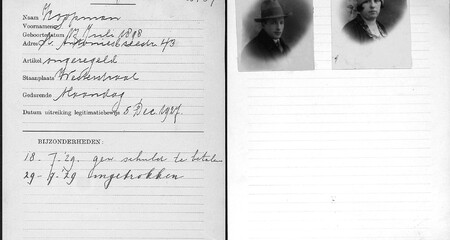 Naam Koopman
Voornamen
Geboortedatum 12 Juli 1898
Adres St. Antoniesbreestr 43
Artikel ongeregeld
Staanplaats Westerstraat
Gedurende Maandag
Datum uitreiking legitimatiebewijs 5 Dec. 1927.
BIJZONDERHEDEN:
18-7-29. gen schulde te betalen
29-9-'29 ingetrokken